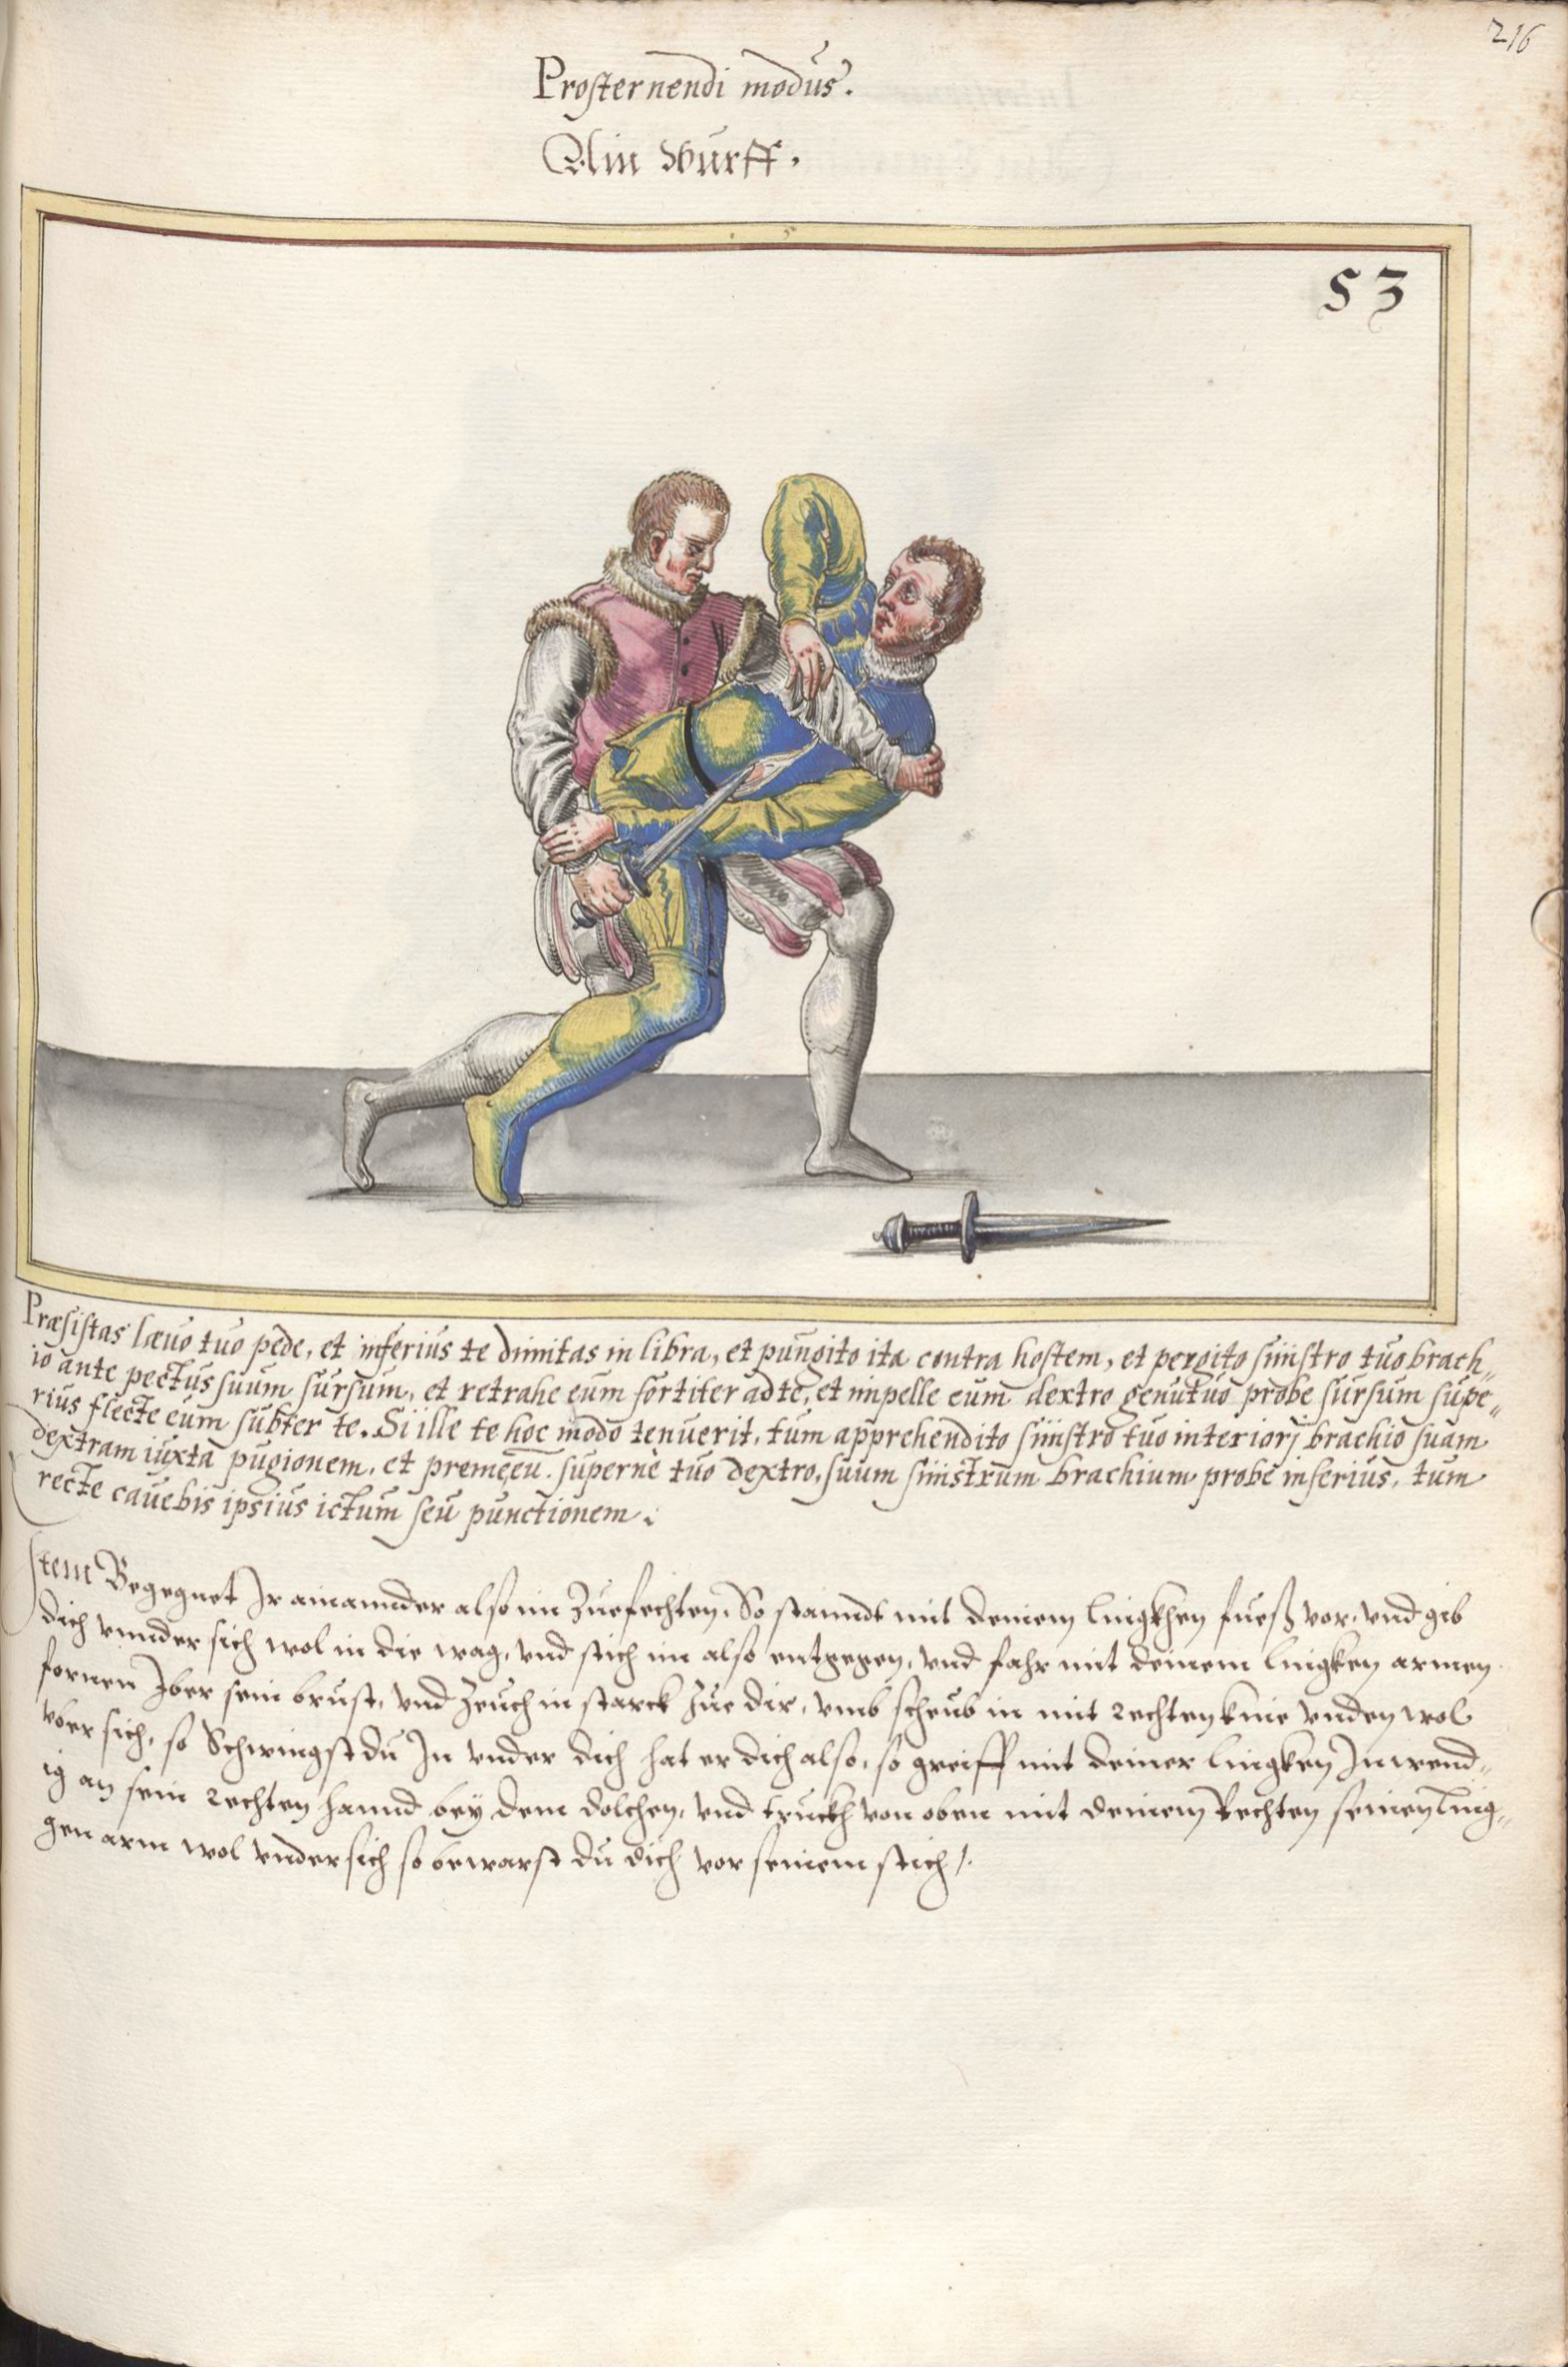 216
Prosternendi modus.
Ain Wurff.
53
Præsistas lævo tuo pede, et inferius te dimitas in libra, et pungito ita contra hostem, et pergito sinistro tuo brach„
io ante pectus suum sursum, et retrahe eum fortiter ad te, et impelle eum dextro genu tuo probe sursum supe„
rius flecte eum subter te. Si ille te hoc modo tenuerit, tum apprehendito sinistro tuo interiorj brachio suam
dextram iuxta pugionem, et preme eū. superne tuo dextro, suum sinistrum brachium probe inferius, tum
recte cavebis ipsius ictum seu punctionem.
Item Begegnet Ir ainannder also im Zuefechten, So stanndt mit deinem lingkhen fueß vor, vnd gib
dich vnnder sich wol in die wag, vnd stich im also entgegen, vnd fahr mit deinem lingken armen
fornen Iber sein brust, vnd Zeuch in starck Zue dir, vmb scheub in mit rechten knie vnden wol
vber sich, so Schwingst du In vnder dich hat er dich also, so greiff mit deiner lingken Inwend„
ig an sein rechten hannd bey dem dolchen, vnd truckh von oben mit deinem Rechten seinen ling„
gen arm wol vnder sich so bewarst du dich vor seinem stich /.